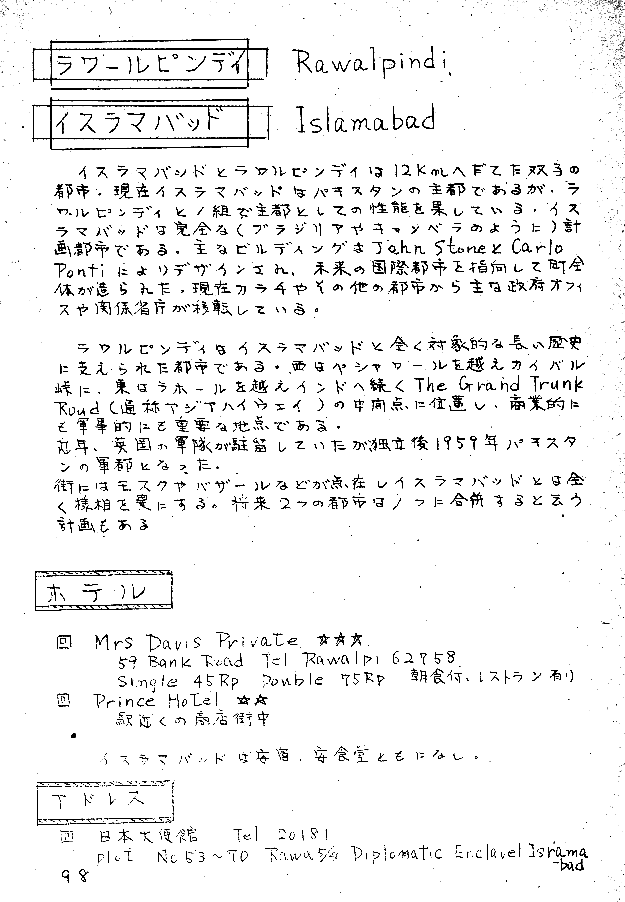 ラワールピンディ Rawalpindi
イスラマバッド Islamabad
イスラマバッドとラワルピンディは12Kmへだてた双子の
都市。現在イスラマバッドはパキスタンの主都であるが、ラ
ワルピンディと1組で主都としての性能を果している。イス
ラマバッドは完全な(ブラジリアやキャンベラのように)計
画都市である。主なビルディングはJohn StoneとCarlo
Pontiによりデザインされ、未来の国際都市を指向して町全
体が造られた。現在カラチやその他の都市から主な政府オフィ
スや関係省庁が移転している。
ラワルピンディはイスラマバッドと全く対象的な長い歴史
に支えられた都市である。西はペシャワールを越えカイバル
峠に、東はラホールを越えインドへ続くThe Grand Trunk
Road(通称アジアハイウェイ)の中間点に位置し、商業的に
も軍事的にも重要な地点である。
近年、英国の軍隊が駐留していたが独立後1959年パキスタ
ンの軍都となった。
街にはモスクやバザールなどが点在しイスラマバッドとは全
く様相を異にする。将来2つの都市は1つに合併すると云う
計画もある
ホテル
回 Mrs Davis Private ☆☆☆
59 Bank Road Tel Rawalpi 62758
Single 45Rp Double 75Rp 朝食付、レストラン有り
回 Prince Hotel ☆☆
駅近くの商店街中
イスラマバッドは安宿、安食堂ともになし。
アドレス
回 日本大使館 Tel 20181
Plot No 53~70 Rawa54 Diplomatic Enclavel Isrāma
-bad
98